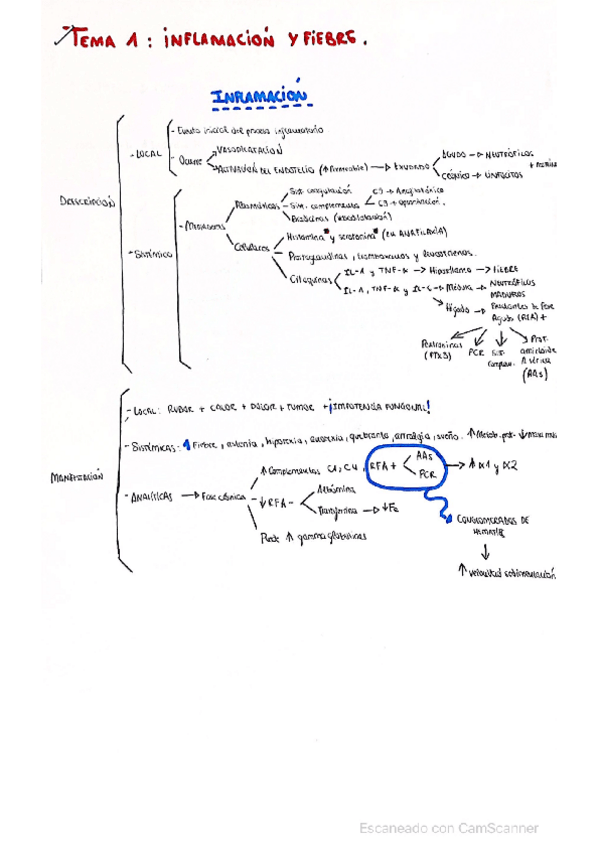 TEMA 1: INFLAMACIÓN Y FIEBRE.
INFLAMACIÓN
DESCRIPCIÓN
- LOCAL
- Evento inicial del proceso inflamatorio
- Ocurre
VASODILATACIÓN
ACTIVACIÓN DEL ENDOTELIO (↑Permeable) → EXUDADO
AGUDO → NEUTRÓFILOS
CRÓNICO → LINFOCITOS
- SISTÉMICO
- Mediadores
Plasmáticos
Sist. coagulación
- Sist. complemento
C3 → opsonización.
(vasodilatación)
Celulares
Histamina y serotonina (EN ANAFILAXIA)
Prostaglandinas, tromboxanos y leucotrienos.
Citoquinas
IL-1 y TNF-α → Hipotálamo → FIEBRE
IL-1, TNF-α y IL-6 → Médula → NEUTRÓFILOS
MADUROS
Hígado → Reactantes de Fase
Aguda (RFA) +
Pentraxinas
(PTX3)
PCR
Sist.
complem.
Prot.
amiloide
A sérica
(AAs)
MANIFESTACIÓN
- LOCAL: RUBOR + CALOR + DOLOR + TUMOR + ¡IMPOTENCIA FUNCIONAL!
- SISTÉMICAS: Fiebre, astenia, hiporexia, anorexia, quebranto, artralgia, sueño. ↑Metab. prot. ↓masa mus
- ANALÍTICAS → Fase crónica
↑ Complemento C3, C4, RFA +
AAs
PCR
→ ↑ α1 y α2
- ↓ RFA -
Albúmina
Transferrina → ↓Fe
Puede ↑ gammaglobulinas
CONGLOMERADOS DE
HEMATÍE
↑ velocidad sedimentación
Escaneado con CamScanner